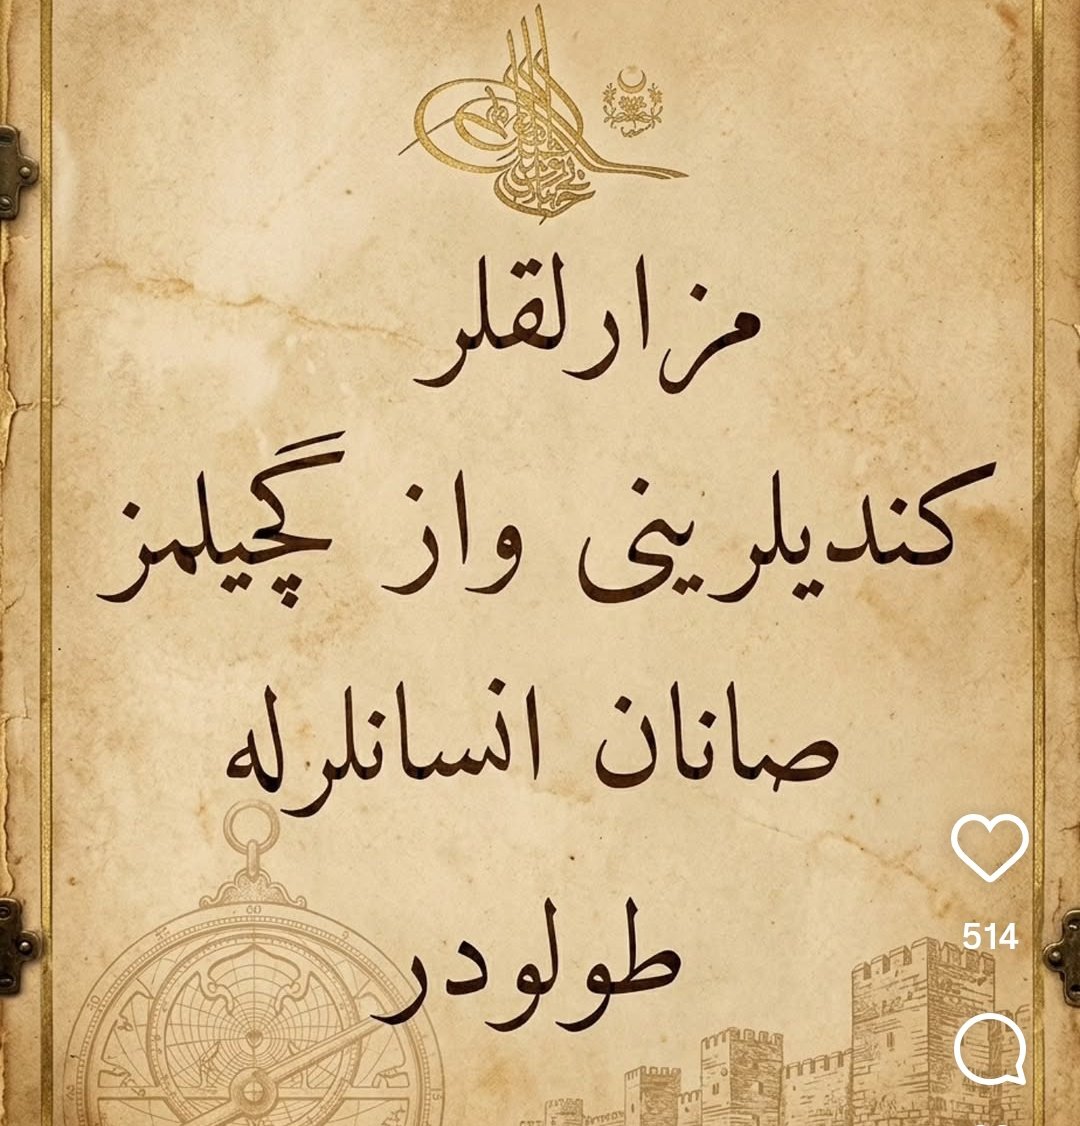 مزارلقلر
كنديلرينى واز گچيلمز
صانان انسانلرله
طولودر
514